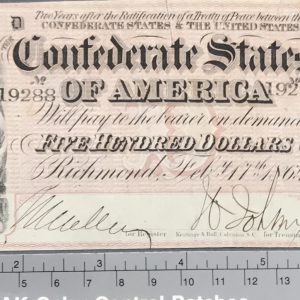 D Two Years after the Ratification of a Treaty of Peace between the
CONFEDERATE STATES & THE UNITED STATES
Confederate States
No 19288 OF AMERICA No 192
Will pay to the bearer on demand
FIVE HUNDRED DOLLARS
Richmond, Feby 17th 186
for Register Keatinge & Ball, Columbia, S.C. for Treasurer
2 3 4
5 6 7 8 9 10 11 12 13
Control Patches